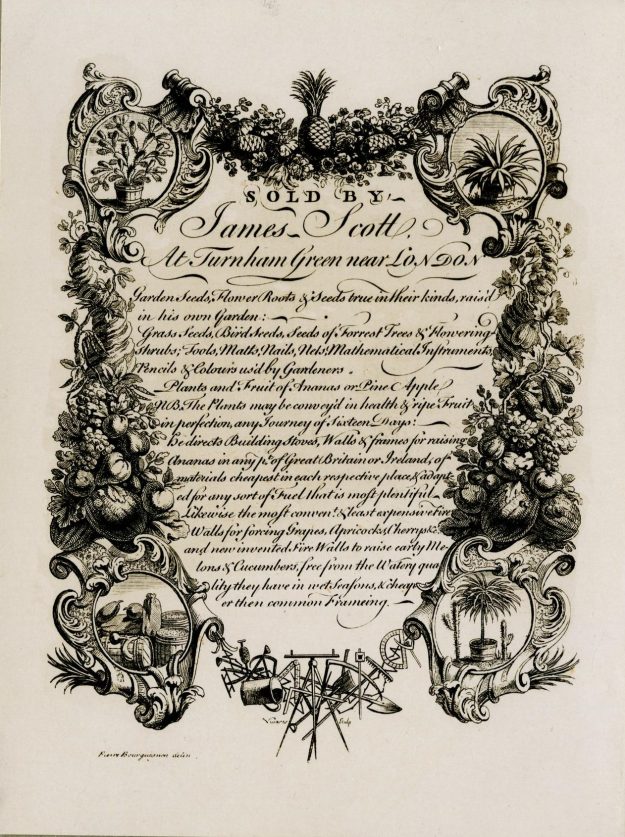 SOLD BY
James Scott,
At Turnham Green near LONDON
Garden Seeds, Flower Roots & Seeds true in their kinds, rais'd
in his own Garden:
Grass Seeds, Bird Seeds, Seeds of Forrest Trees & Flowering
Shrubs; Tools, Matts, Nails, Nets, Mathematical Instruments,
Pencils & Colours us'd by Gardeners.
Plants and Fruit of Ananas or Pine Apple
NB. The Plants may be convey'd in health & ripe Fruit
in perfection, any Journey of Sixteen Days:
He directs Building Stoves, Walls & frames for raising
Ananas in any pt. of Great Britain or Ireland, of
materials cheapest in each respective place, & adapt-
ed for any sort of Fuel that is most plentiful
Likewise the most convent. & least expensive Fire
Walls for forcing Grapes, Apricocks, Cherrys &c.
and new invented Fire Walls to raise early Me-
lons & Cucumbers, free from the Watery qua
lity they have in wet Seasons, & cheap-
er then common Frameing.
Sculp
Pierre Bourguignon delin